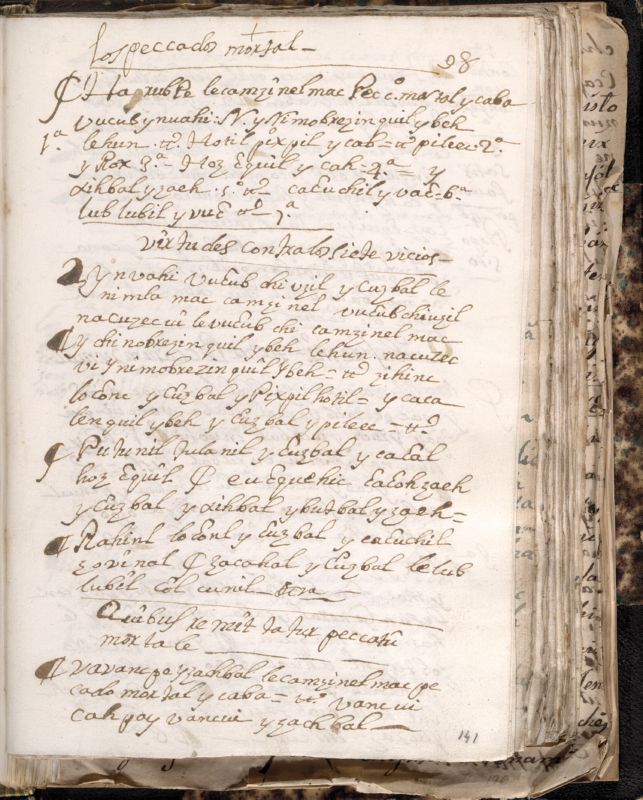 los peccados mortal
98
¶ Ita xubte lecamzinel mac Pecco. mortal y caba
vucub ynuahi: N. y Nimobrezin quil ybeh
1ª lehun. tto. Hotil pixpil y cab = tto pileec 2º
y Rox 3ª = Hoz Equil y cah = 4ª = y
xihbal yzaeh . 5º tto caluchil y vaĉ 6ª
lub lubil y vuĉ tto 7ª
virtudes contra los siete vicios
ynvahi vucub chi vzil y Cuzbal le
nimla mac camzinel vucub chiuzil
nacuzec ui levucub chi camzinel mac
¶ y chi nobrezin quil ybeh lehun. nacuzec
vi y nimobrezin quil ybeh = tto zihinc
loconc y Cuzbal y Pixpil hotil = y caca
len quil ybeh y Cuzbal y pileec = tto
¶ Putunil tulanil y Cuzbal y calal
hoz Equil ¶ euequehic cacohzaeh
y Cuzbal y xihbal y butbal y zaeh =
¶ Rahinl loconl y Cuzbal y caluchil
zovinal ¶ zacahal y Cuzbal le lub
lubil col cunil
Quibus remittatur peccatũ
mortale
¶ vavanc pay zachbal lecamzinel mac pe
cado mortal y caba = tto vanc ui
cah pay vancui y zachbal
141